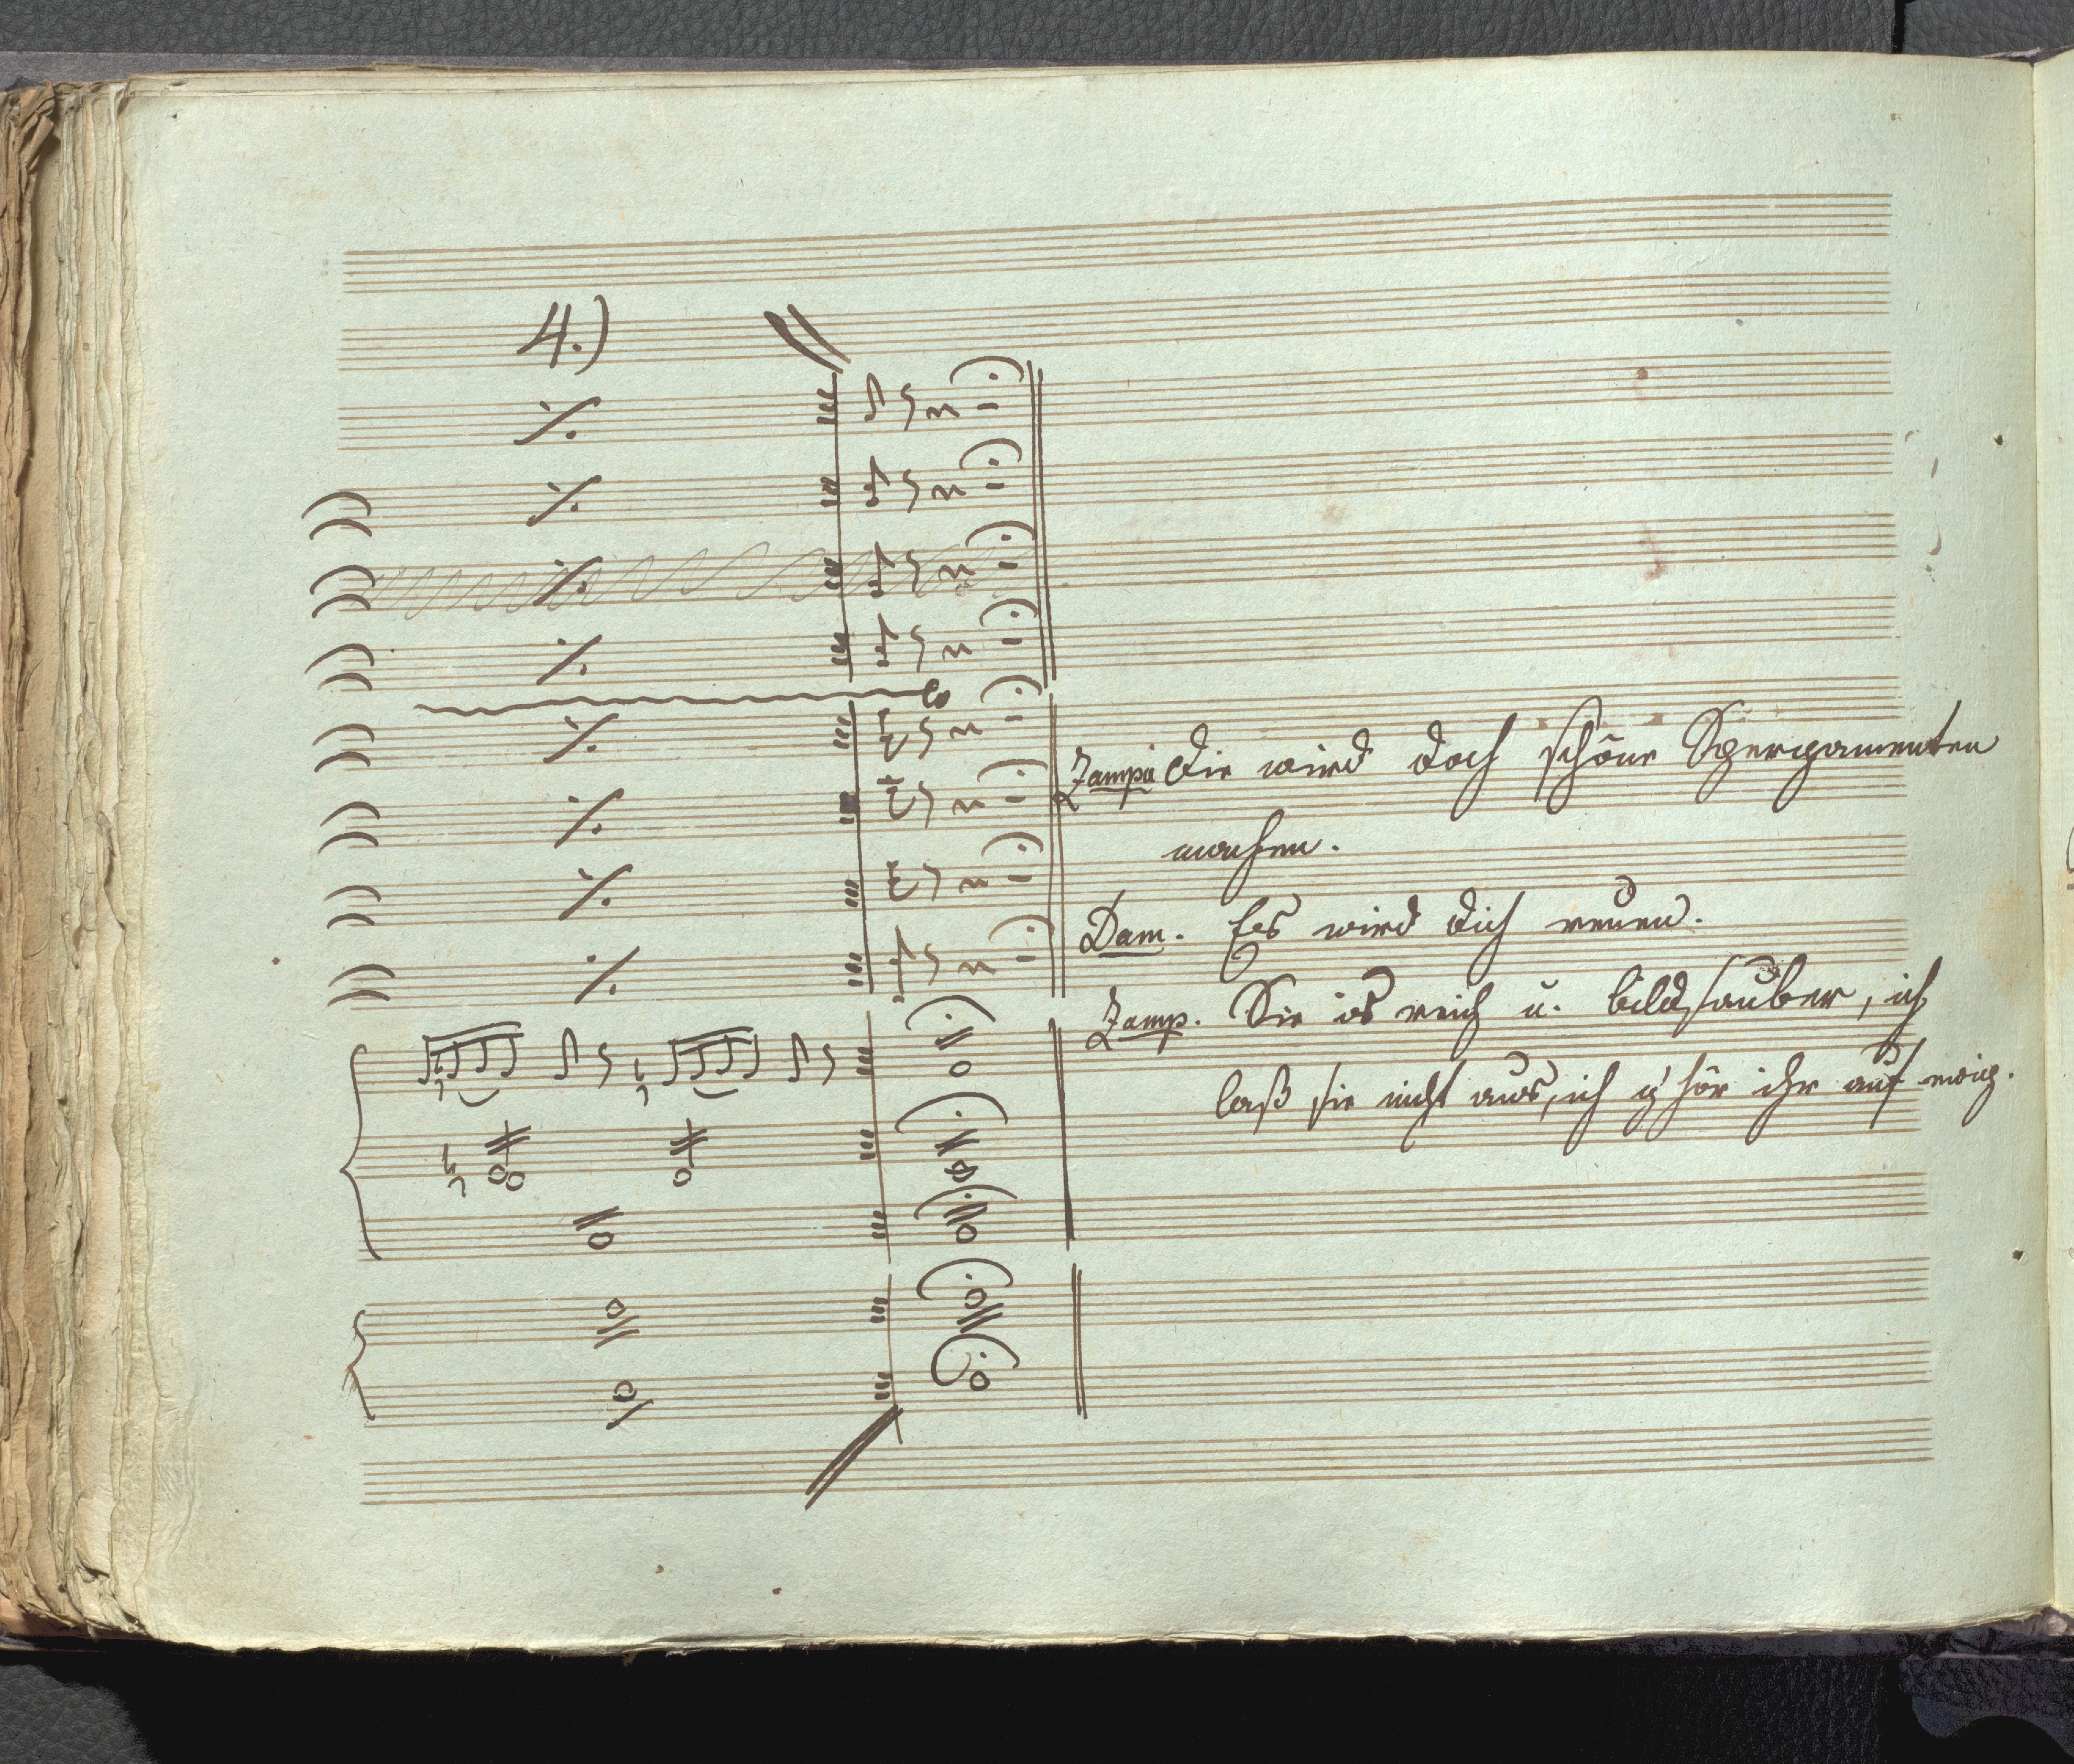 4.)
Zampa Die wird doch schöne Spergamenten
machen.
Dam. Es wird dich reuen.
Zamp. Sie is reich u. bildsauber, ich
laß sie nicht aus, ich g'hör ihr auf ewig.